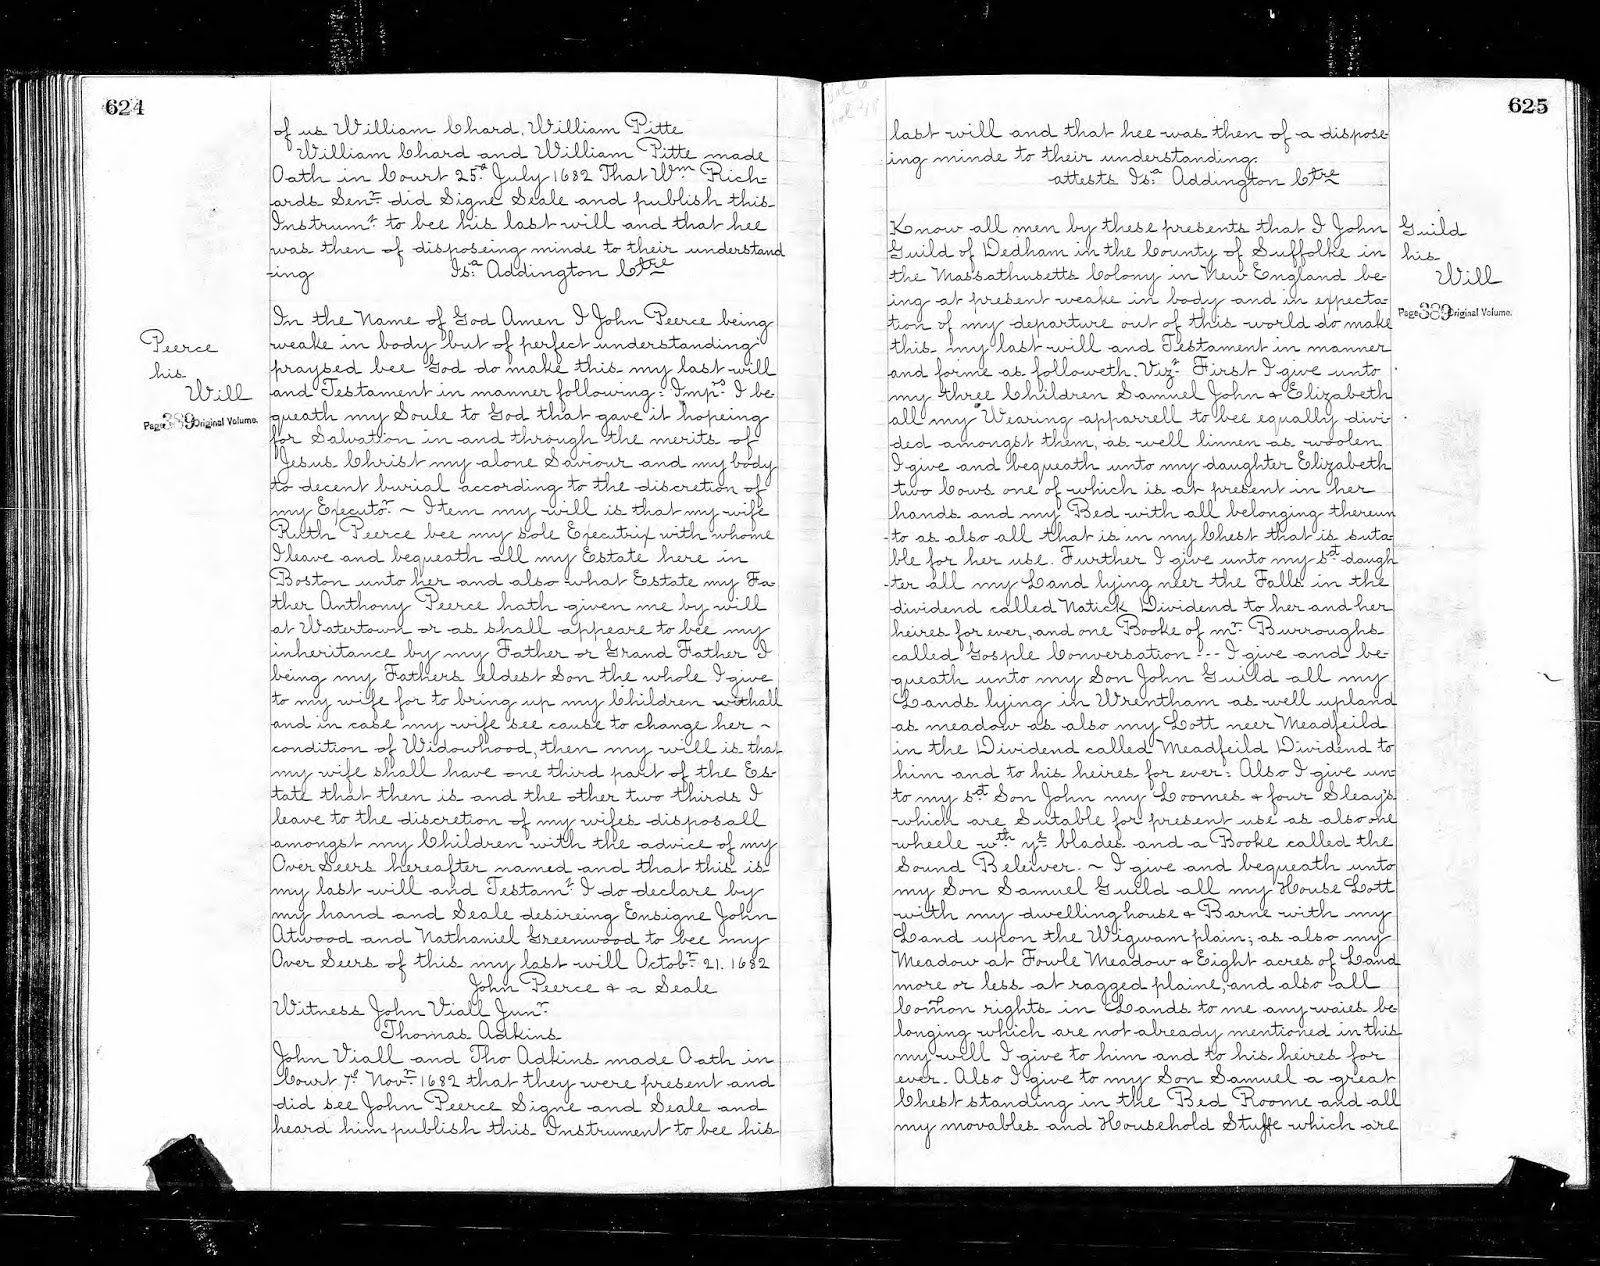 624
of us William Chard, William Pitte
William Chard and William Pitte made
Oath in Court 25.ᵈ July 1682 That Wᵐ Rich-
ards Senʳ did Signe Seale and publish this
Instrumᵗ to bee his last will and that hee
was then of disposeing minde to their understand
-ing Isᵃ Addington Ctʳᵉ
Peerce
his
Will
Page 389 Original Volume.
In the Name of God Amen I John Peerce being
weake in body but of perfect understanding
praysed bee God do make this my last will
and Testament in manner following: Impʳˢ I be-
queath my Soule to God that gave it hopeing
for Salvation in and through the merits of
Jesus Christ my alone Saviour and my body
to decent burial according to the discretion of
my Executoʳ ~ Item my will is that my wife
Ruth Peerce bee my sole Executrix with whome
I leave and bequeath all my Estate here in
Boston unto her and also what Estate my Fa-
ther Anthony Peerce hath given me by will
at Watertown or as shall appeare to bee my
inheritance by my Father or Grand Father I
being my Fathers eldest Son the whole I give
to my wife for to bring up my Children withall
and in case my wife see cause to change her ~
condition of Widowhood, then my will is that
my wife shall have one third part of the Es-
tate that then is and the other two thirds I
leave to the discretion of my wifes disposall
amongst my Children with the advice of my
Over Seers hereafter named and that this is
my last will and Testamᵗ I do declare by
my hand and Seale desireing Ensigne John
Atwood and Nathaniel Greenwood to bee my
Over Seers of this my last will Octobʳ 21. 1682
John Peerce & a Seale
Witness John Viall Junʳ
Thomas Adkins
John Viall and Tho Adkins made Oath in
Court 7ᵒ Novʳ 1682 that they were present and
did see John Peerce Signe and Seale and
heard him publish this Instrument to bee his
625
last will and that hee was then of a dispose-
ing minde to their understanding.
attests Isᵃ Addington Ctʳᵉ
Guild
his
Will
Page 389 Original Volume.
Know all men by these presents that I John
Guild of Dedham in the County of Suffolke in
the Massathusetts Colony in New England be-
ing at present weake in body and in expecta-
tion of my departure out of this world do make
this my last will and Testament in manner
and forme as followeth. Vizᵗ First I give unto
my three Children Samuel John & Elizabeth
all my Wearing apparrell to bee equally divi-
ded amongst them, as well linnen as woolen
I give and bequeath unto my daughter Elizabeth
two Cows one of which is at present in her
hands and my Bed with all belonging thereun
to as also all that is in my Chest that is suta-
ble for her use. Further I give unto my sᵈ daugh
-ter all my Land lying neer the Falls in the
dividend called Natick Dividend to her and her
heires for ever, and one Booke of mʳ Burroughs
called Gosple Conversation --- I give and be-
queath unto my Son John Guild all my
Lands lying in Wrentham as well upland
as meadow as also my Lott neer Meadfeild
in the Dividend called Meadfeild Dividend to
him and to his heires for ever: Also I give un-
to my sᵈ Son John my Loomes & four Sleay's
which are Sutable for present use as also one
wheele wᵗʰ yᵉ blades and a Booke called the
Sound Beleiver. ~ I give and bequeath unto
my Son Samuel Guild all my House Lott
with my dwelling house & Barne with my
Land upon the Wigwam plain; as also my
Meadow at Fowle Meadow & Eight acres of Land
more or less at ragged plaine, and also all
Com̃on rights in Lands to me any waies be-
longing which are not already mentioned in this
my will I give to him and to his heires for
ever. Also I give to my Son Samuel a great
Chest standing in the Bed Roome and all
my movables and Household Stuffe which are